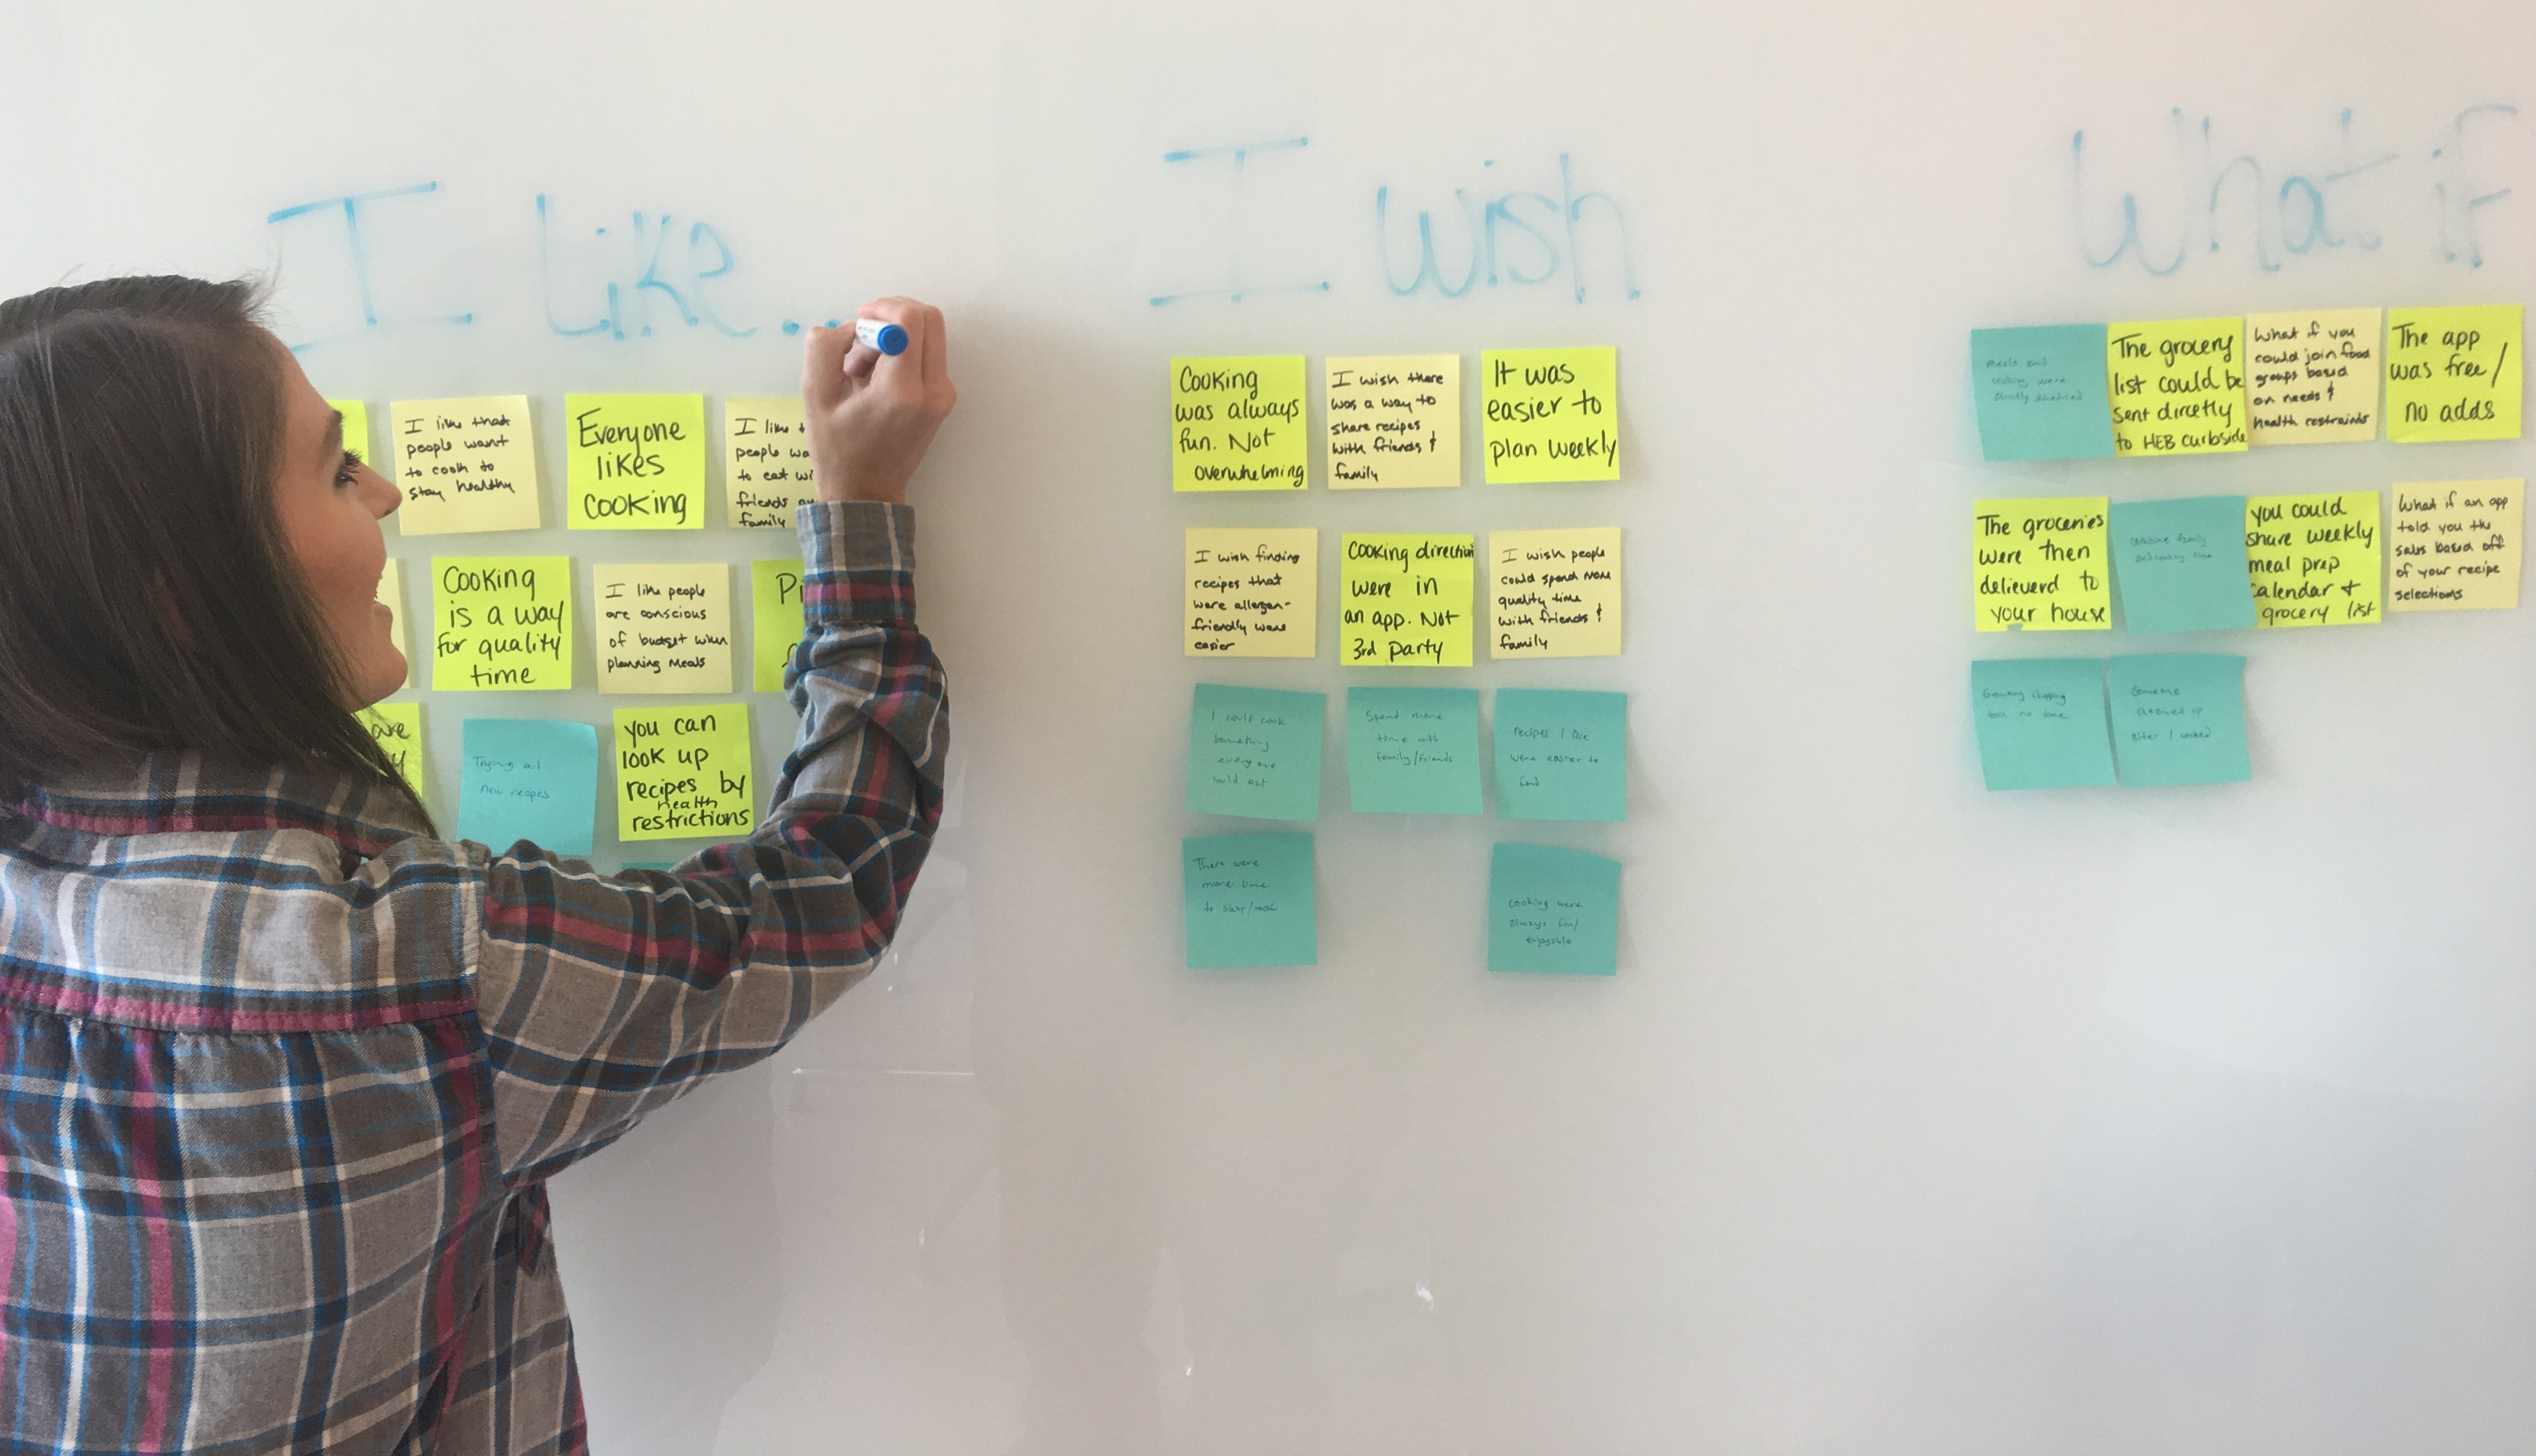 I like...
I like that
people want
to cook to
stay healthy
Everyone
likes
cooking
I like
people
to eat
friends
family
Cooking
is a way
for quality
time
I like people
are conscious
of budget when
planning meals
Pi
are
Trying out
new recipes
you can
look up
recipes by
health
restrictions
I wish
Cooking
was always
fun. Not
overwhelming
I wish there
was a way to
share recipes
with friends &
family
It was
easier to
plan weekly
I wish finding
recipes that
were allergen-
friendly were
easier
Cooking direction
were in
an app. Not
3rd party
I wish people
could spend more
quality time
with friends &
family
I could cook
something
everyone
could eat
Spend more
time with
family/friends
recipes I like
were easier to
find
There were
more time
to shop/cook
cooking were
always fun/
enjoyable
What if
meals and
cooking were
The grocery
list could be
sent dircetly
to HEB curbside
What if you
could join food
groups based
on needs &
health restraints
The app
was free/
no adds
The groceries
were then
delieverd to
your house
combine family
and cooking time
you could
share weekly
meal prep
calendar +
grocery list
What if an app
told you the
sales based off
of your recipe
selections
Grocery shopping
took no time
Someone
cleaned up
after I cooked